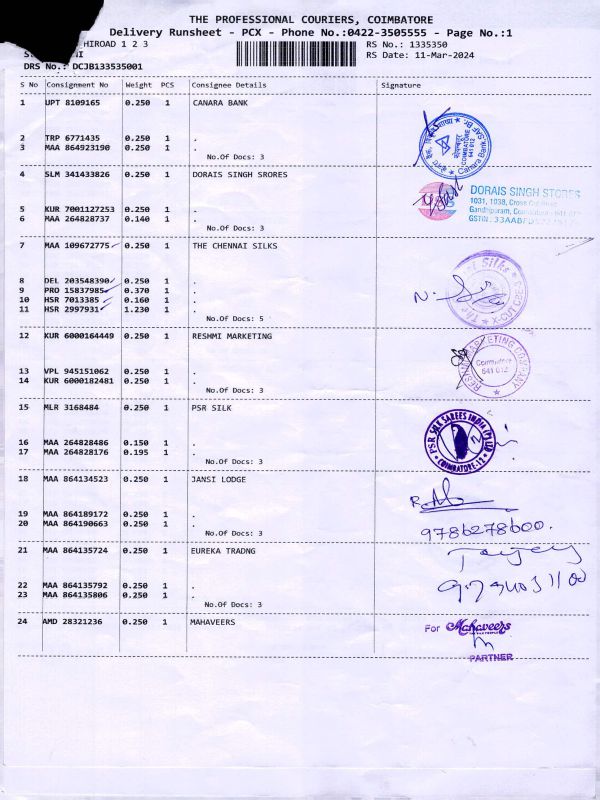 THE PROFESSIONAL COURIERS, COIMBATORE
Delivery Runsheet - PCX - Phone No.:0422-3505555 - Page No.:1
HIROAD 1 2 3
RS No.: 1335350
RS Date: 11-Mar-2024
DRS No.: DCJB133535001
S No Consignment No Weight PCS Consignee Details Signature
1 UPT 8109165 0.250 1 CANARA BANK
2 TRP 6771435 0.250 1 .
3 MAA 864923190 0.250 1 .
No.Of Docs: 3
COIMBATORE
641 012
Canara Bank
4 SLM 341433826 0.250 1 DORAIS SINGH SRORES
5 KUR 7001127253 0.250 1 .
6 MAA 264828737 0.140 1 .
No.Of Docs: 3
DORAIS SINGH STORES
1031, 1038, Cross Cut Road
Gandhipuram, Coimbatore - 641
GSTIN: 33AABFD
7 MAA 109672775 0.250 1 THE CHENNAI SILKS
8 DEL 203548390 0.250 1 .
9 PRO 15837985 0.370 1 .
10 HSR 7013385 0.160 1 .
11 HSR 2997931 1.230 1 .
No.Of Docs: 5
Silks
X-CUT
12 KUR 6000164449 0.250 1 RESHMI MARKETING
13 VPL 945151062 0.250 1 .
14 KUR 6000182481 0.250 1 .
No.Of Docs: 3
RESHMI MARKETING COMPANY
Coimbatore
641 012
15 MLR 3168484 0.250 1 PSR SILK
16 MAA 264828486 0.150 1 .
17 MAA 264828176 0.195 1 .
No.Of Docs: 3
PSR SILK SAREES INDIA (P) LTD
COIMBATORE-12
18 MAA 864134523 0.250 1 JANSI LODGE
19 MAA 864189172 0.250 1 .
20 MAA 864190663 0.250 1 .
No.Of Docs: 3
9786278600.
21 MAA 864135724 0.250 1 EUREKA TRADNG
22 MAA 864135792 0.250 1 .
23 MAA 864135806 0.250 1 .
No.Of Docs: 3
24 AMD 28321236 0.250 1 MAHAVEERS
For Mahaveers
PARTNER